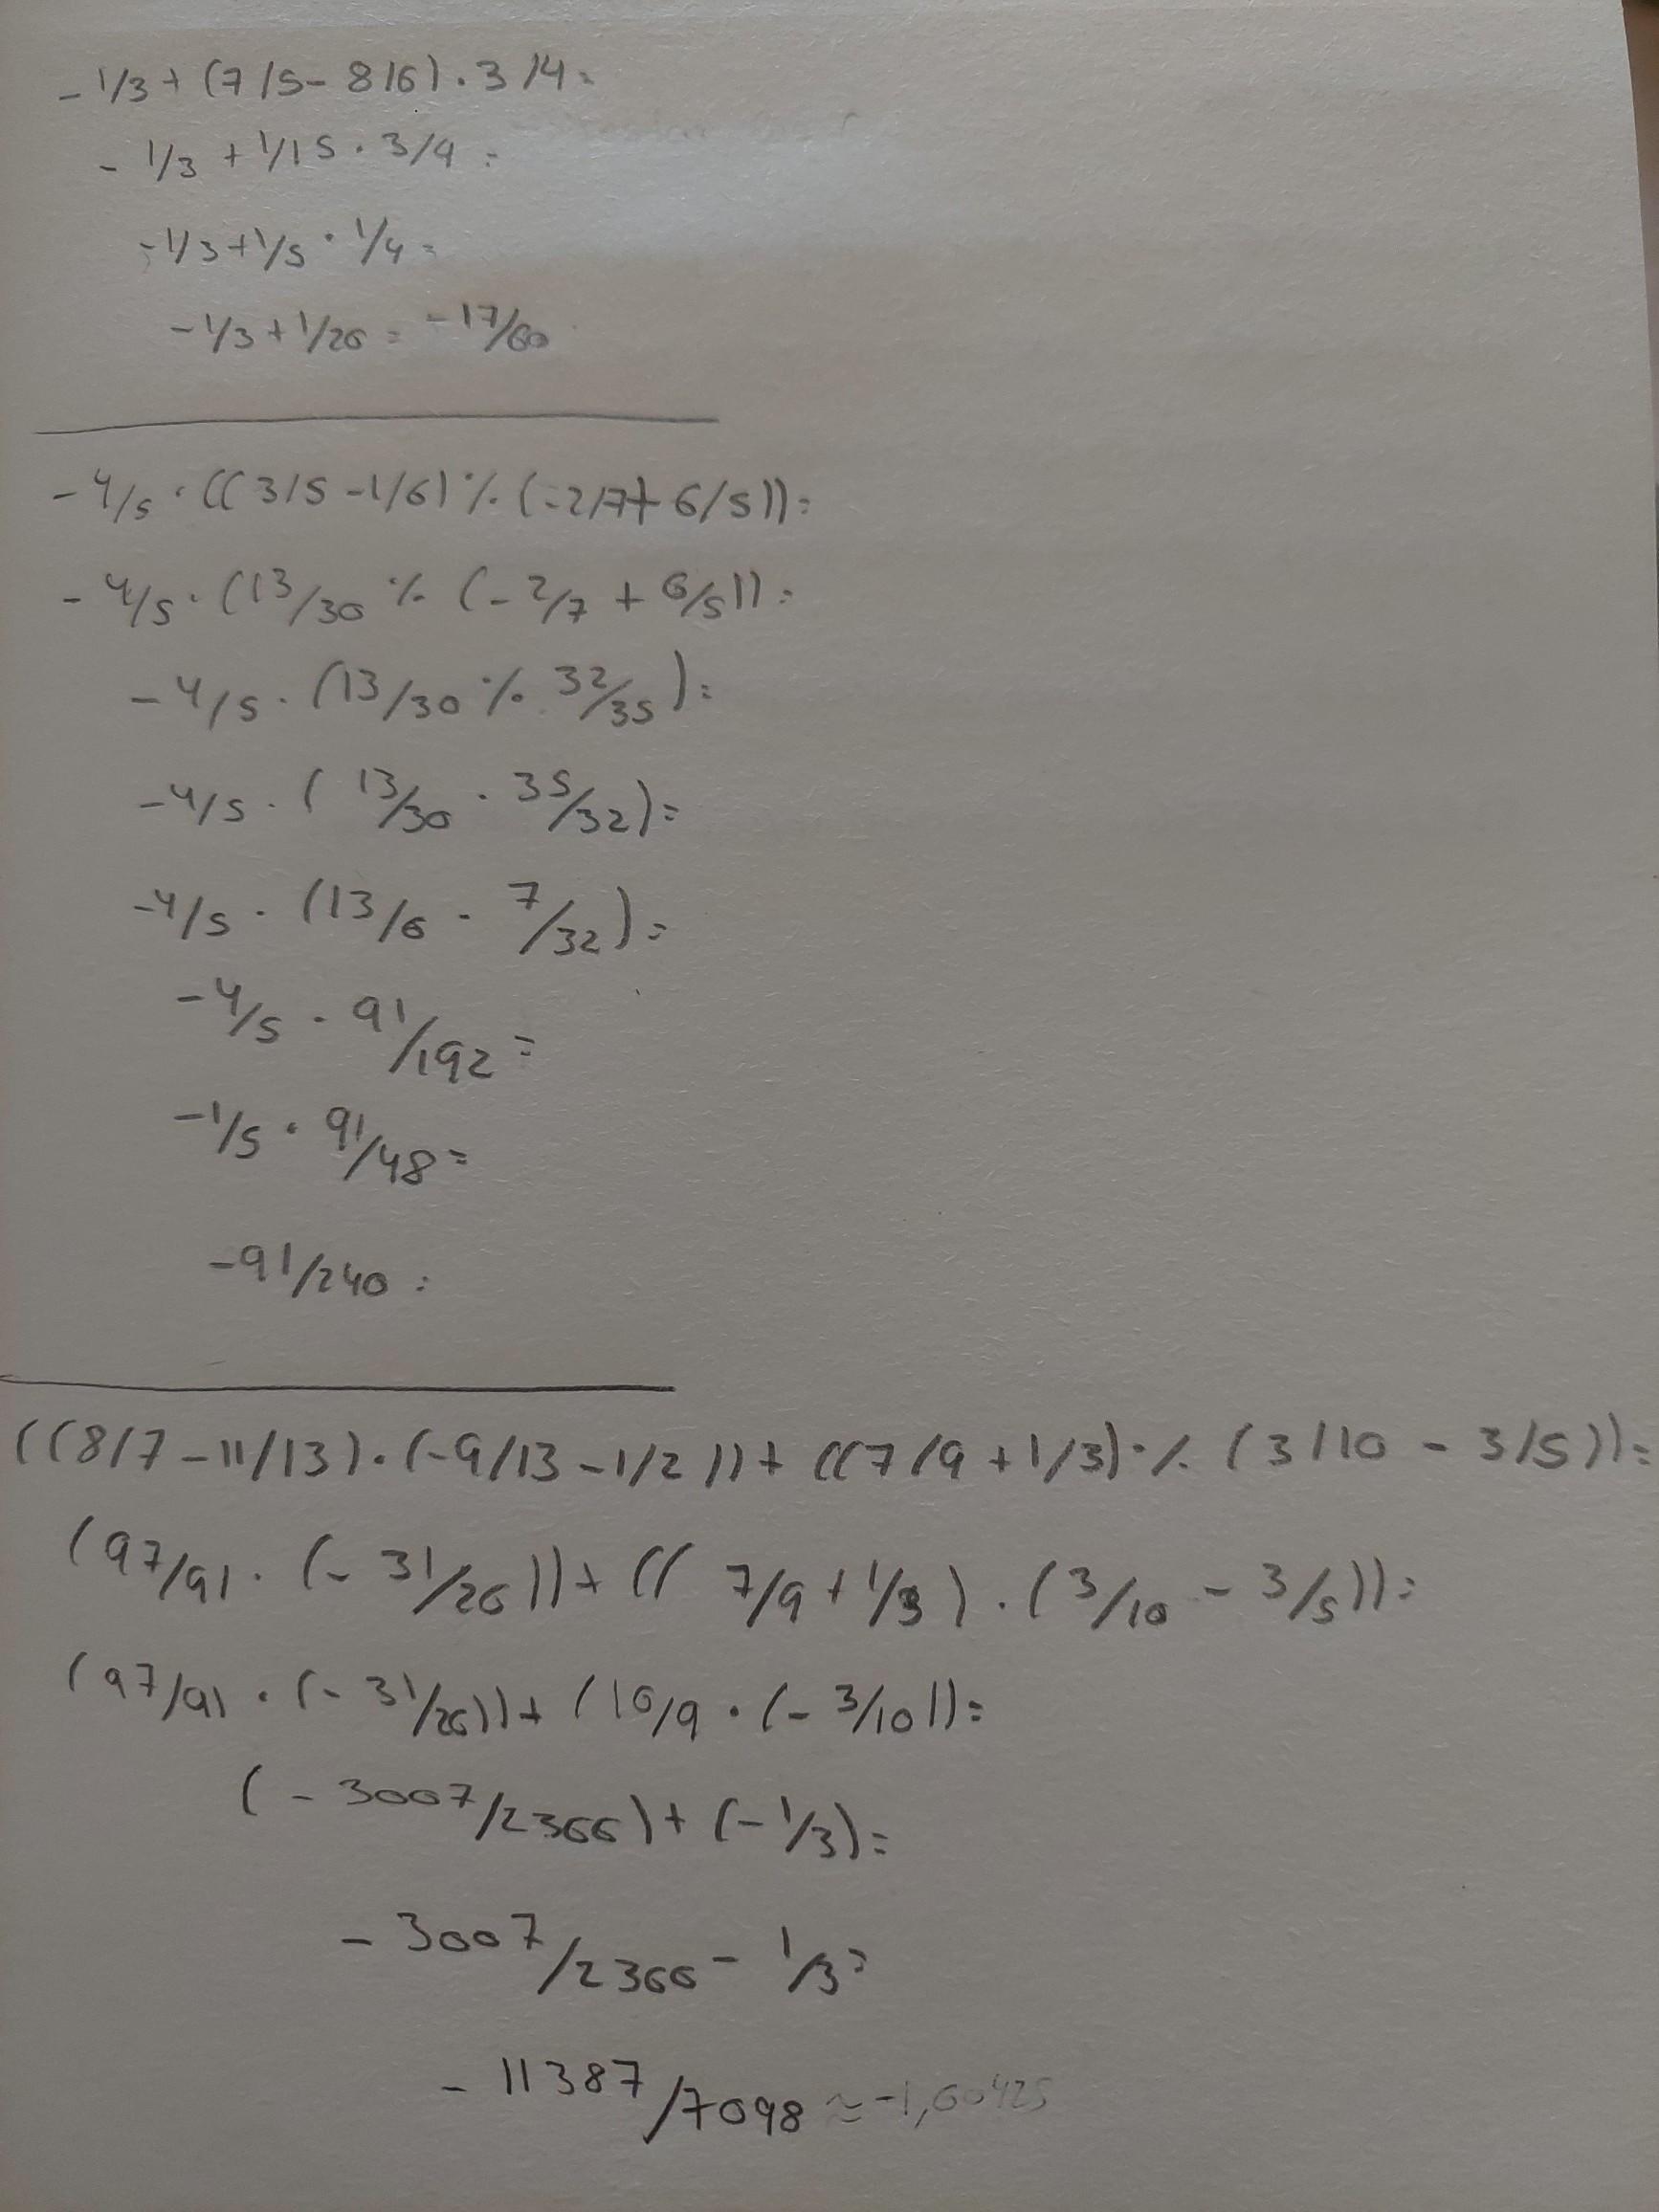 - 1/3 + (7/5 - 8/6) · 3/4 =
- 1/3 + 1/15 · 3/4 =
- 1/3 + 1/5 · 1/4 =
- 1/3 + 1/20 = - 17/60
- 4/5 · ((3/5 - 1/6) ·/. (-2/7 + 6/5)) =
- 4/5 · (13/30 ·/. (- 2/7 + 6/5)) =
- 4/5 · (13/30 ·/. 32/35) =
- 4/5 · (13/30 · 35/32) =
- 4/5 · (13/6 · 7/32) =
- 4/5 · 91/192 =
- 1/5 · 91/48 =
- 91/240 =
((8/7 - 11/13) · (-9/13 - 1/2)) + ((7/9 + 1/3) ·/. (3/10 - 3/5)) =
(97/91 · (- 31/26)) + ((7/9 + 1/3) · (3/10 - 3/5)) =
(97/91 · (- 31/26)) + (10/9 · (- 3/10)) =
(- 3007/2366) + (- 1/3) =
- 3007/2366 - 1/3 =
- 11387/7098 ≈ -1,60425